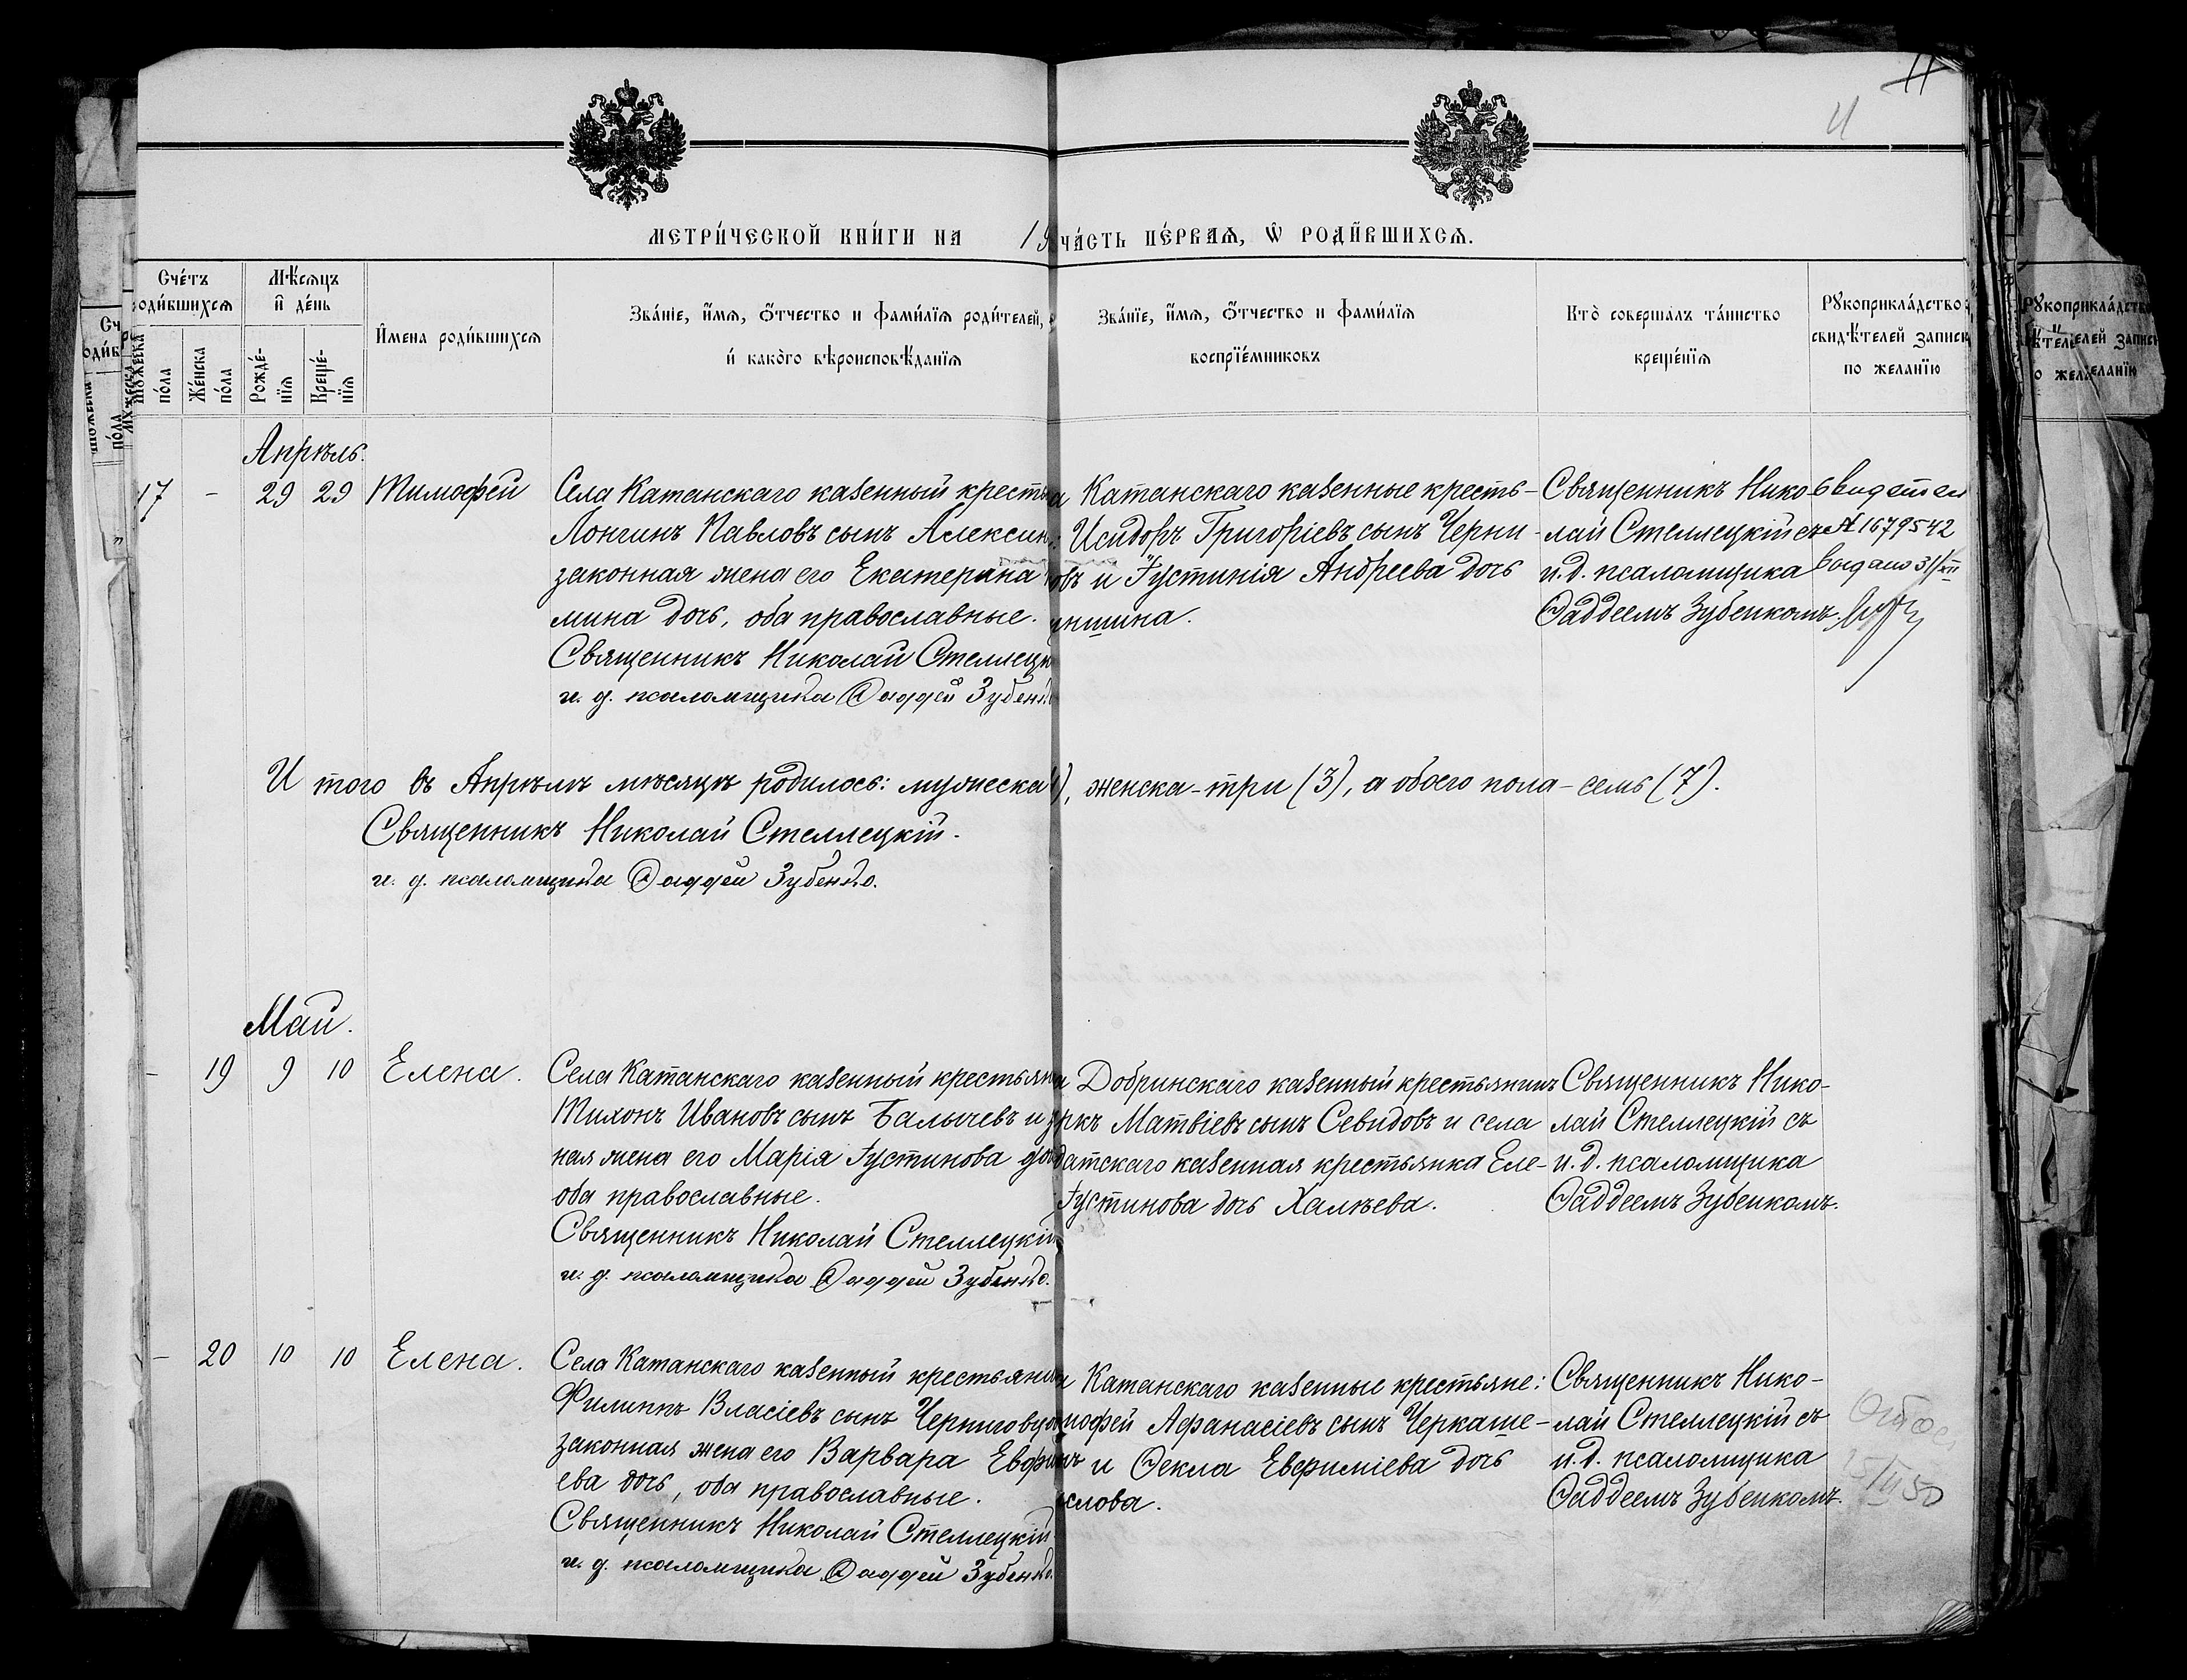 11
11
МЕТРИ́ЧЕСКОЙ КНИ́ГИ НА 19
ЧА́СТЬ ПЕ́РВАЯ, Ѿ РОДИ́ВШИХСЯ.
Сче́тъ
роди́вшихся
Мѣ́сяцъ
и҆ де́нь
Мꙋжеска по́ла
Же́нска по́ла
Рожде́-
нїя
Креще́-
нїя
И҆мена роди́вшихся
Зва́нїе, и҆́мя, ѻ҆́тчество и фами́лїя роди́телей,
и҆ како́го вѣроисповѣ́данїя
Зва́нїе, и҆́мя, ѻ҆́тчество и фами́лїя
воспрїе́мниковъ
Кто̀ соверша́лъ та́инство
креще́нїя
Рꙋкоприкла́дство
свидѣ́телей записи
по жела́нїю
Апрѣль.
17 - 29 29 Тимофей
Села Катанскаго казенный кресть
Лонгинъ Павловъ сынъ Алексин
законная жена его Екатерина
мина дочь, оба православные.
Священникъ Николай Стеллецк
и. д. псаломщика Фаддей Зубенк
а Катанскаго казенные кресть-
: Исидоръ Григоріевъ сынъ Черни-
овъ и Іустинія Андреева дочь
ншина.
Священникъ Нико-
лай Стеллецкій съ
и. д. псаломщика
Фаддеемъ Зубенкомъ.
Свидетел
А 1679542
выдано 31/XII
И того въ Апрѣлѣ мѣсяцѣ родилось: мужеска
), женска - три (3), а обоего пола - семь (7).
Священникъ Николай Стеллецкій.
и. д. псаломщика Фаддей Зубенко.
Май.
- 19 9 10 Елена.
Села Катанскаго казенный крестьян
Тихонъ Ивановъ сынъ Балычевъ и з
ная жена его Марія Іустинова доч
оба православные.
Священникъ Николай Стеллецкій
и. д. псаломщика Фаддей Зубенко.
а Добринскаго казенный крестьянинъ
ркъ Матвіевъ сынъ Севидовъ и села
датскаго казенная крестьянка Еле-
Іустинова дочь Халѣева.
Священникъ Нико-
лай Стеллецкій съ
и. д. псаломщика
Фаддеемъ Зубенкомъ.
- 20 10 10 Елена.
Села Катанскаго казенный крестьянин
Филиппъ Власіевъ сынъ Черниговцо
законная жена его Варвара Евфи
ева дочь, оба православные.
Священникъ Николай Стеллецкій
и. д. псаломщика Фаддей Зубенко.
а Катанскаго казенные крестьяне:
мофей Афанасіевъ сынъ Черкаше-
нъ и Ѳекла Евфиміева дочь
слова.
Священникъ Нико-
лай Стеллецкій съ
и. д. псаломщика
Фаддеемъ Зубенкомъ.